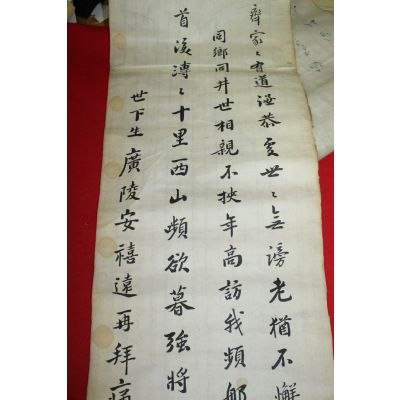 齊家〻有道溫恭處世〻無謗老猶不懈
同鄉同井世相親不挾年高訪我頻那
首淚漙〻十里西山頻欲暮強將
世下生廣陵安禧遠再拜痛